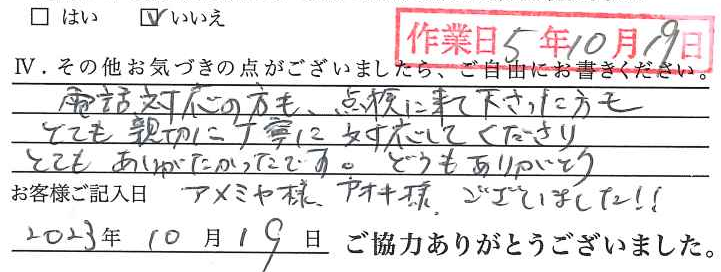 □ はい ☑ いいえ
作業日 5年10月19日
Ⅳ．その他お気づきの点がございましたら、ご自由にお書きください。
電話対応の方も、点検に来て下さった方も
とても親切に丁寧に対応してくださり
とてもありがたかったです。どうもありがとう
お客様ご記入日 アメミヤ様、アオキ様、ございました!!
2023年10月19日 ご協力ありがとうございました。